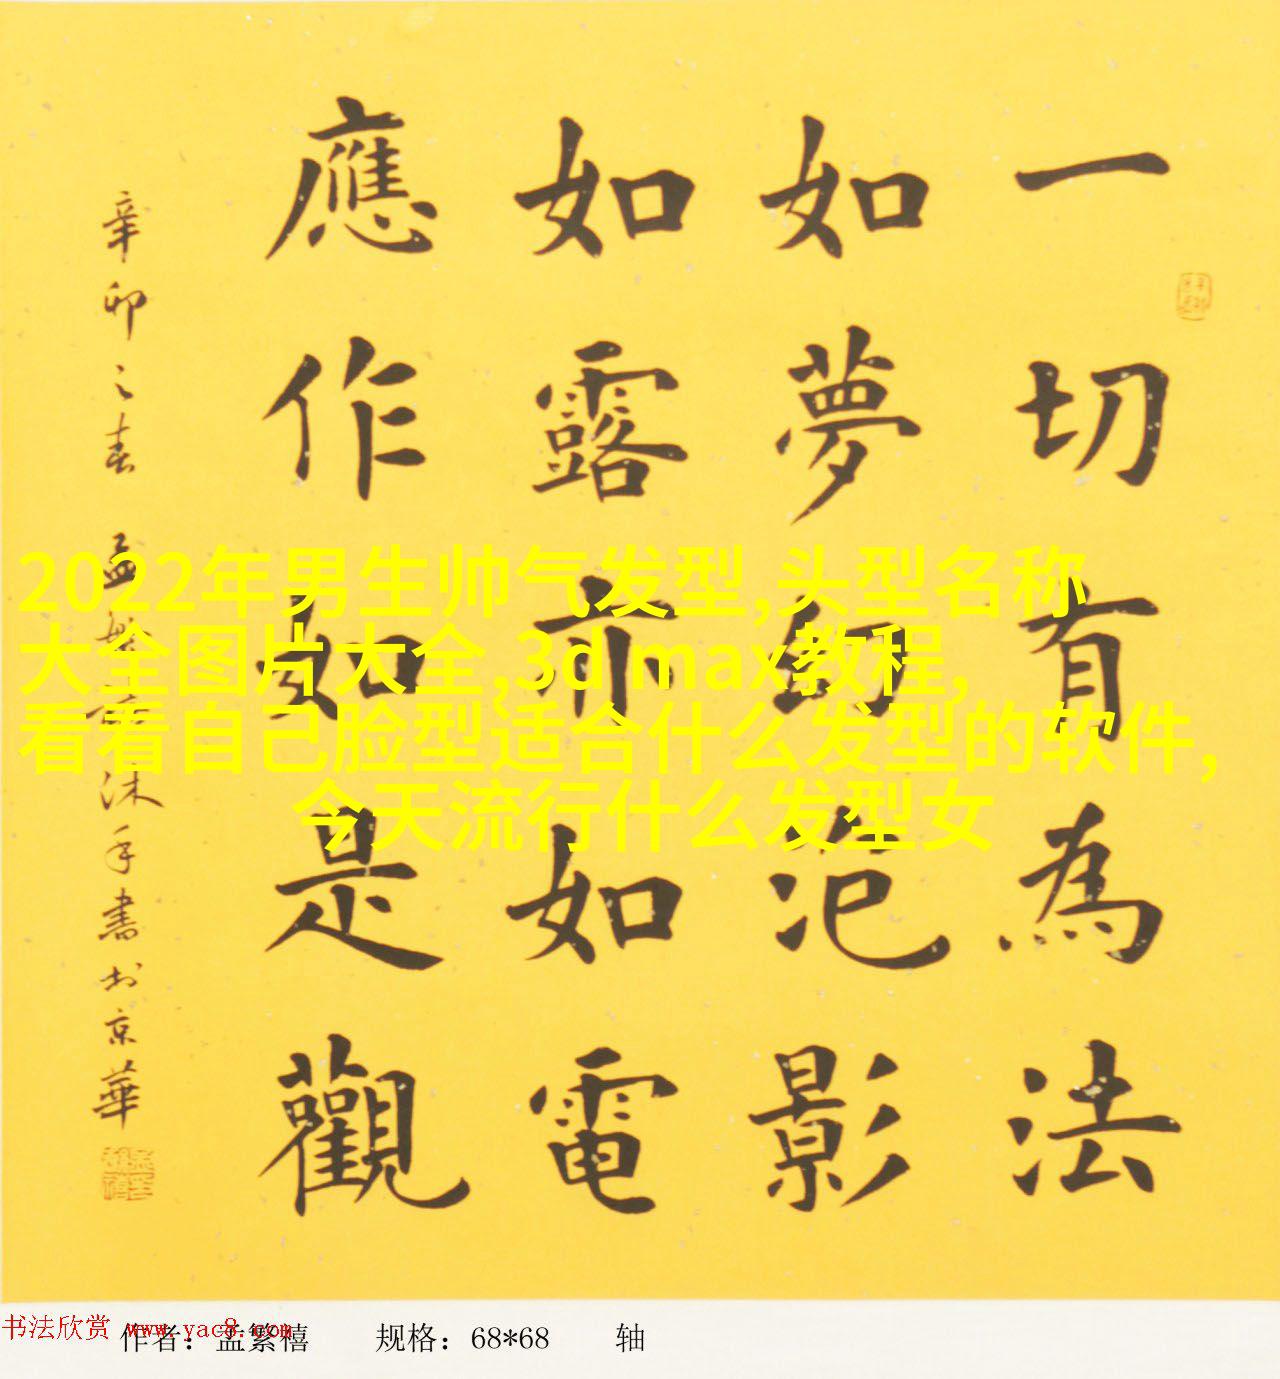 一切有為法
如夢幻泡影
如露亦如電
應作如是觀
辛卯之春 孟繁禧沐手書於京華
2022年男生帅气发型,头型名称
大全图片大全,3d max教程,
看看自己脸型适合什么发型的软件,
今天流行什么发型女
书法欣赏 www.yac8.com
作者：孟繁禧 规格：68*68 轴